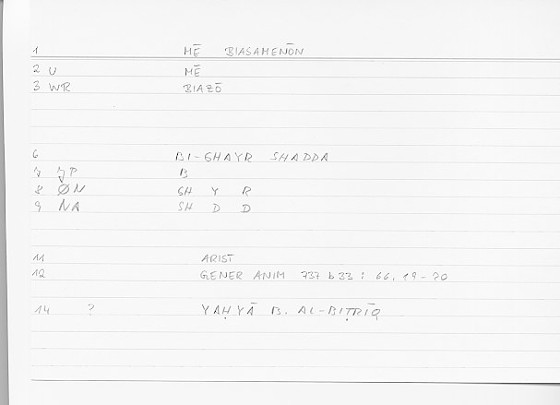 1 MĒ BIASAMENŌN
2 U MĒ
3 WR BIAZŌ
6 BI-GHAYR SHADDA
7 JP B
8 ØN GH Y R
9 NA SH D D
11 ARIST
12 GENER ANIM 737 b 33 : 66, 19-20
14 ? YAḤYĀ B. AL-BIṬRĪQ